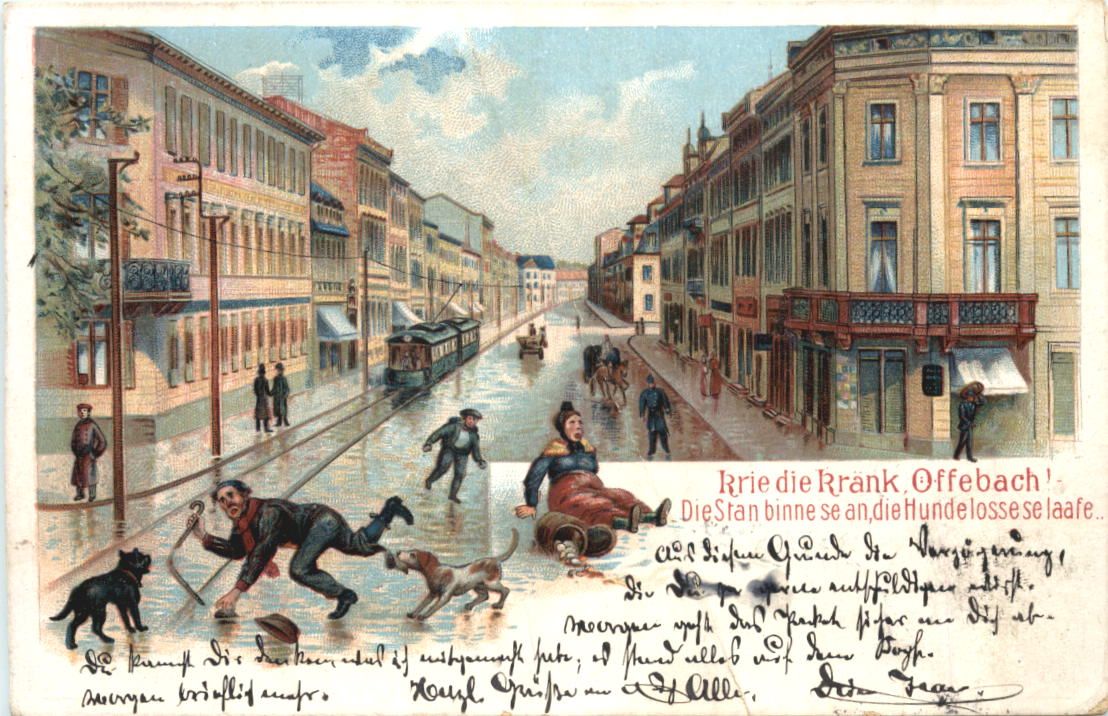 Krie die Kränk, Offebach!
Die Stan binne se an, die Hunde losse se laafe..
Aus diesem Grunde die Verzögerung,
die Du ja gerne entschuldigen wirst.
Morgen geht das Paket sicher an Dich ab.
Du kannst Dir denken, was ich mitgemacht habe; es stand alles auf dem
Morgen brieflich mehr. Herzl. Grüße an Alle. Dein